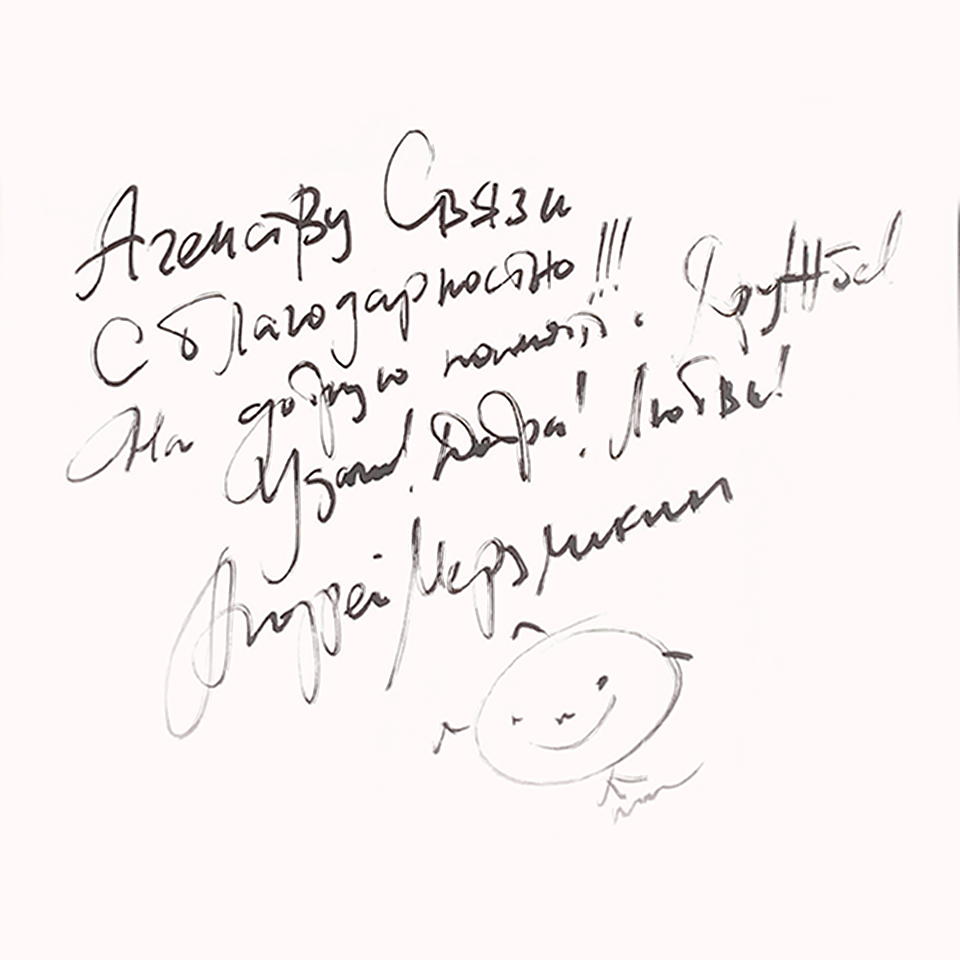 Агенству Связи
С благодарностью!!!
На добрую память. Дружбы!
Удачи! Добра! Любви!
Андрей Мерзликин